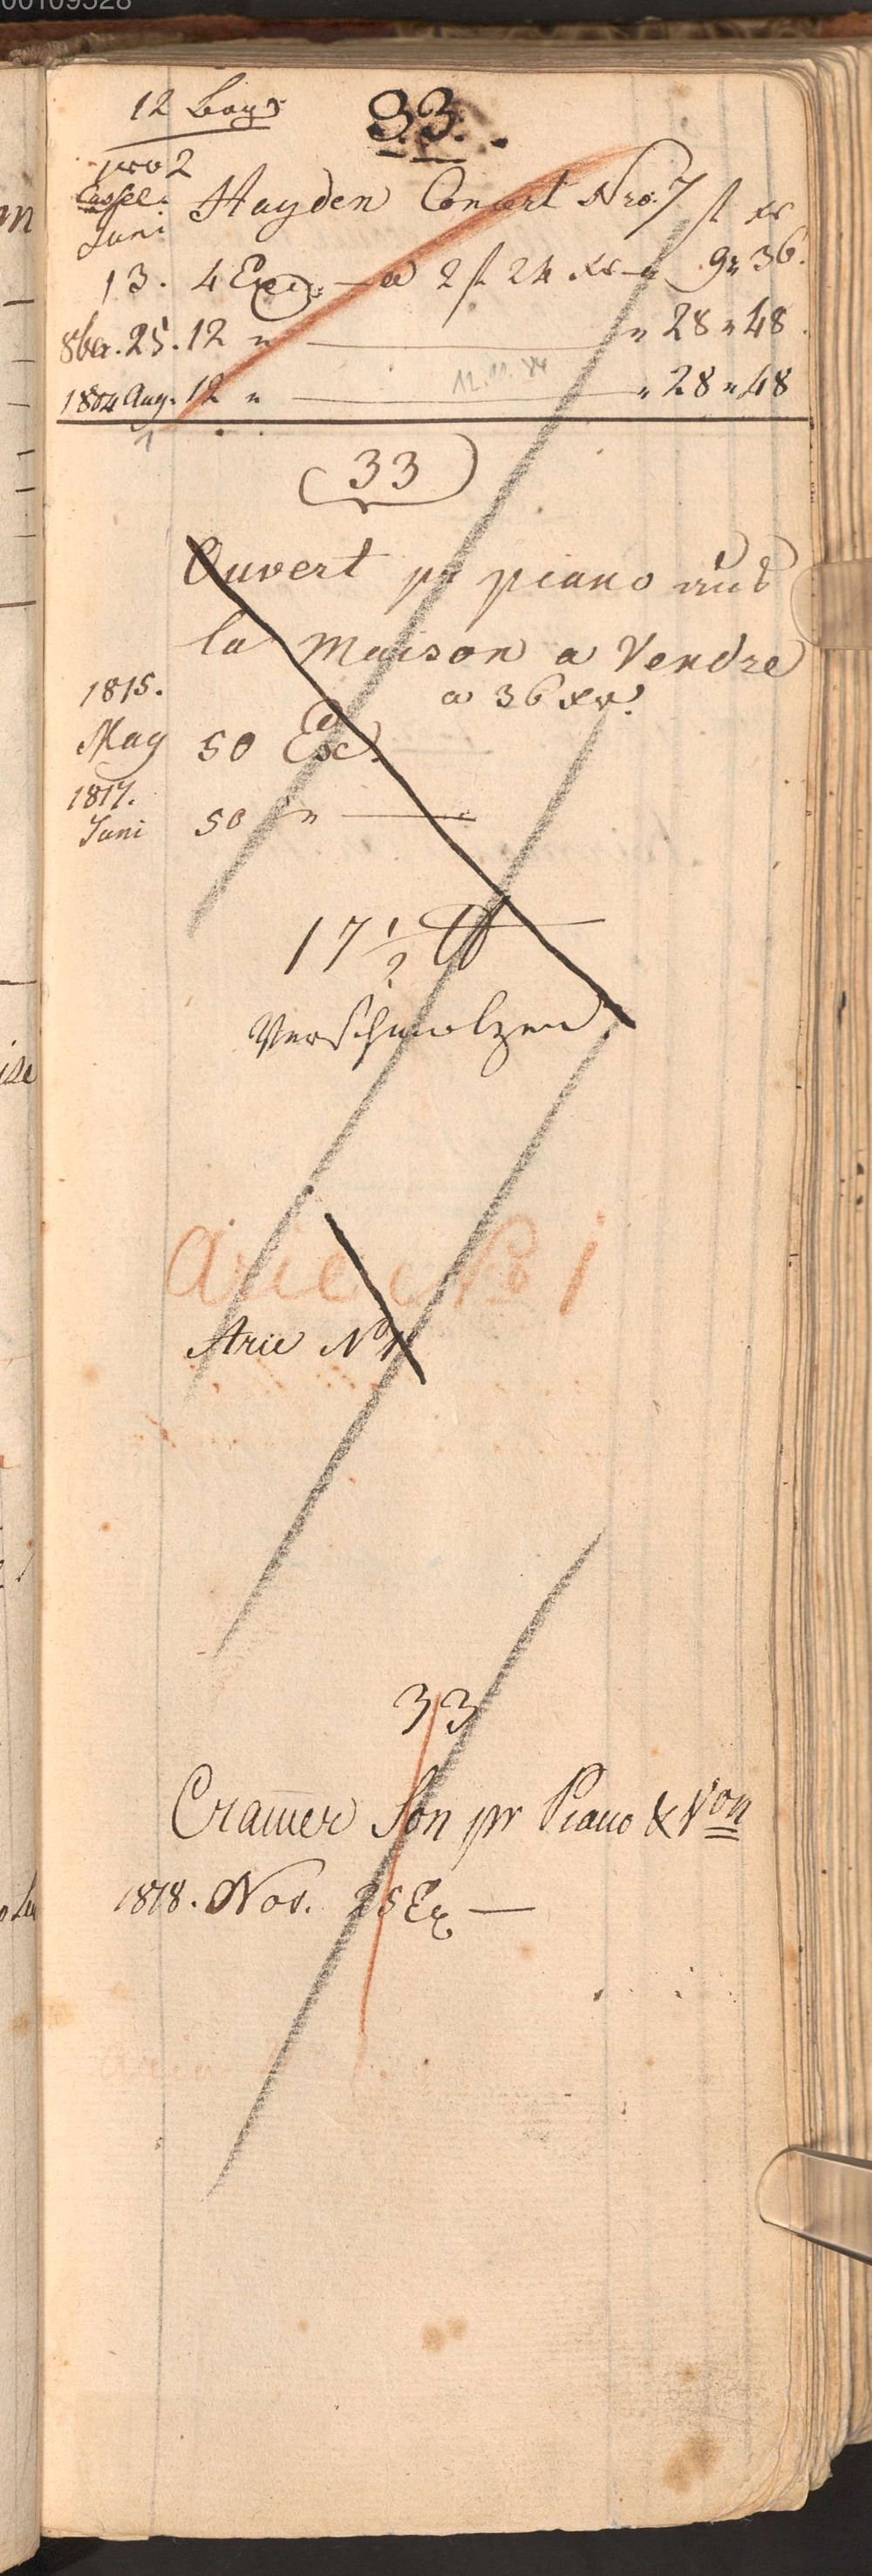 00109528
12 Bog?
33.
pro 2
Cassel.
Hayden Concert Nro. 7 fl xr
Juni
13. 4 Ex. — a 2 fl 24 xr — 9 " 36.
8ber. 25. 12 " — " 28 " 48.
12.11.84
1804 Aug. 12 " — " 28 " 48
(33)
Ouvert pr piano aus
la Maison a Vendre
1815. a 36 xr.
May 50 Ex.
1817.
Juni 50 " —
17 1/2 ℔
Verschmolzen
Arie No 1
Arie No 1
33
Cram̅er Son pr Piano & Von
1818. Nov. 25 Ex —